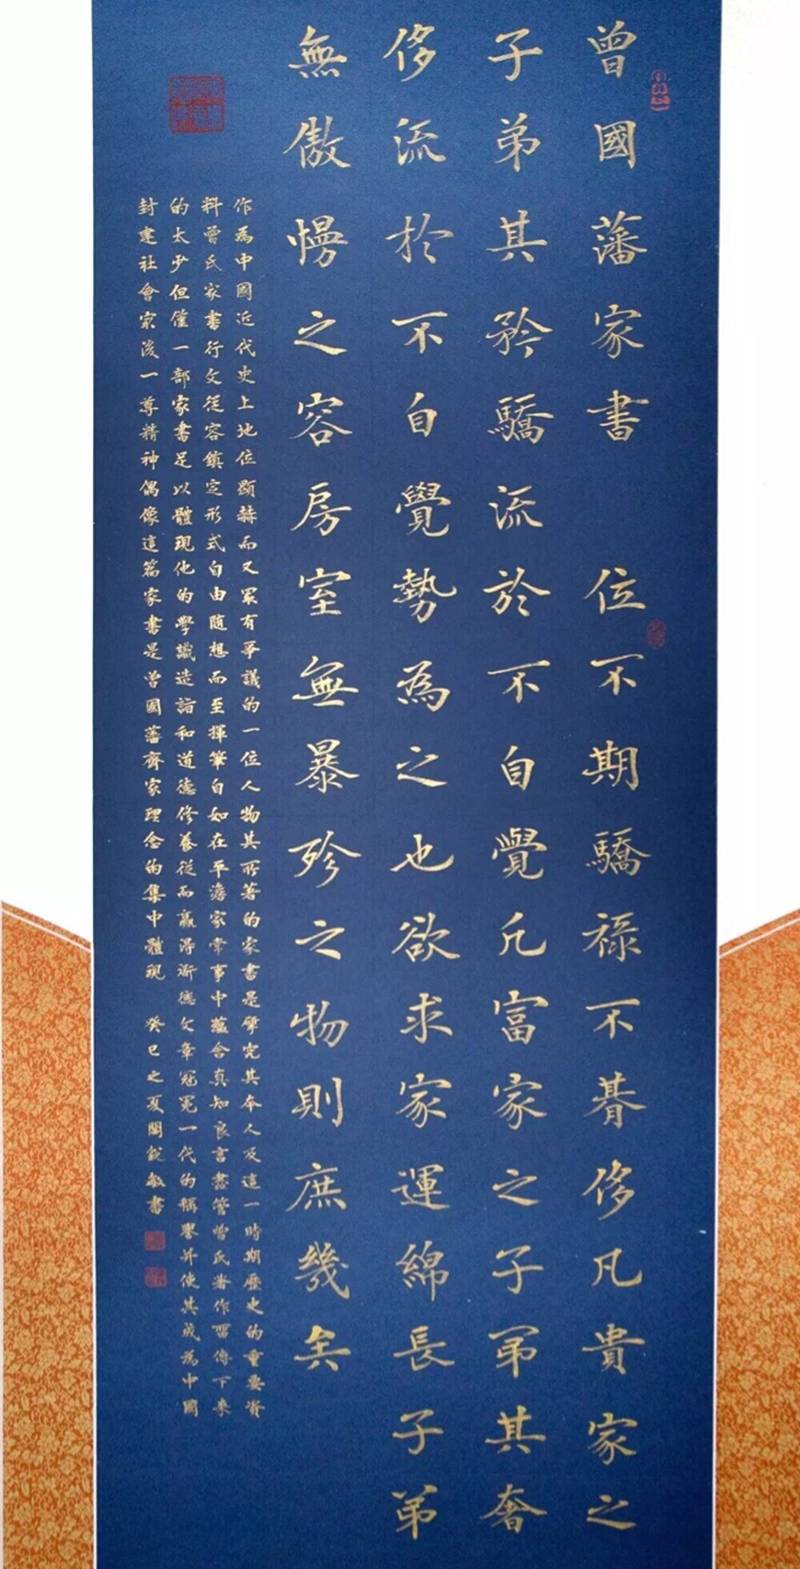 曾國藩家書 位不期驕祿不朞侈凡貴家之
子弟其矜驕流於不自覺凡富家之子弟其奢
侈流於不自覺勢為之也欲求家運綿長子弟
無傲慢之容房室無暴殄之物則庶幾矣
作為中國近代史上地位顯赫而又冣有爭議的一位人物其所著的家書是研究其本人及這一時期歷史的重要資
料曾氏家書行文從容鎮定形式自由隨想而至揮筆自如在平澹家常事中蘊含真知良言盡管曾氏著作留傳下來
的太少但僅一部家書足以體現他的學識造詣和道德修養從而贏得德文章冠冕一代的稱譽并使其成為中國
封建社會冣後一尊精神偶像這篇家書是曾國藩齊家理念的集中體現 癸巳之夏關敏書